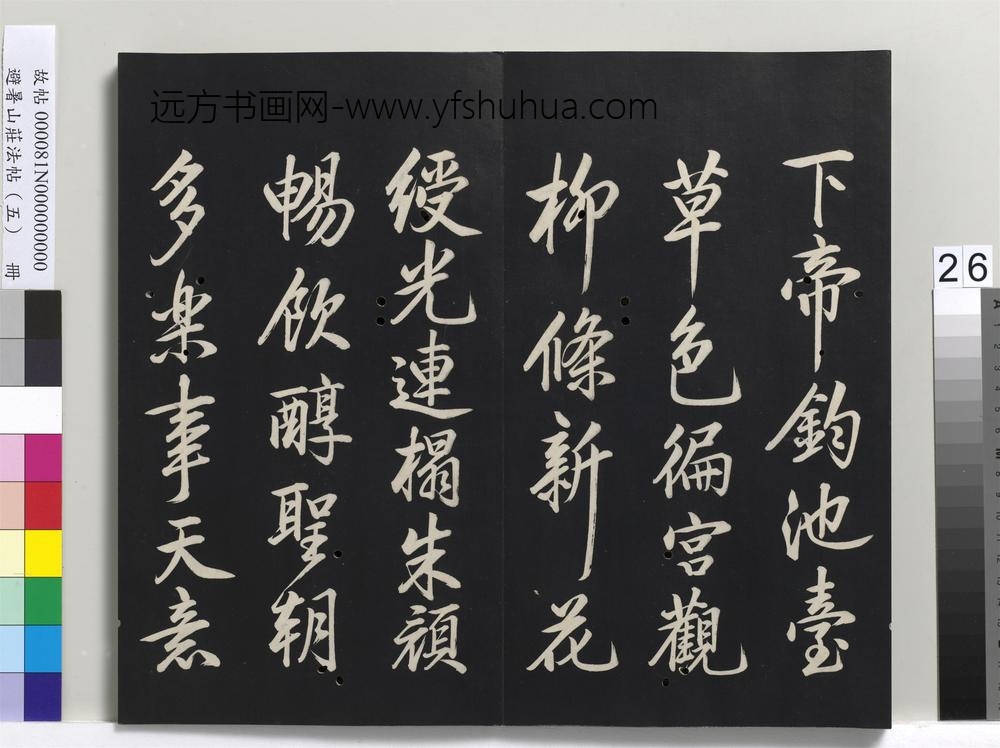 远方书画网-www.yfshuhua.com
下帝鈞池臺
草色徧宮觀
柳條新花
綬光連榻朱顏
暢飲醇聖朝
多楽事天意
故帖 000081N000000000
避暑山莊法帖（五） 冊
26